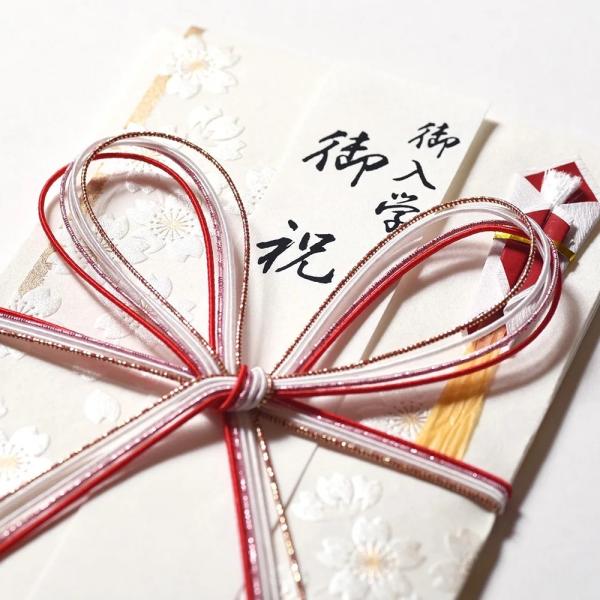 御入学
御祝